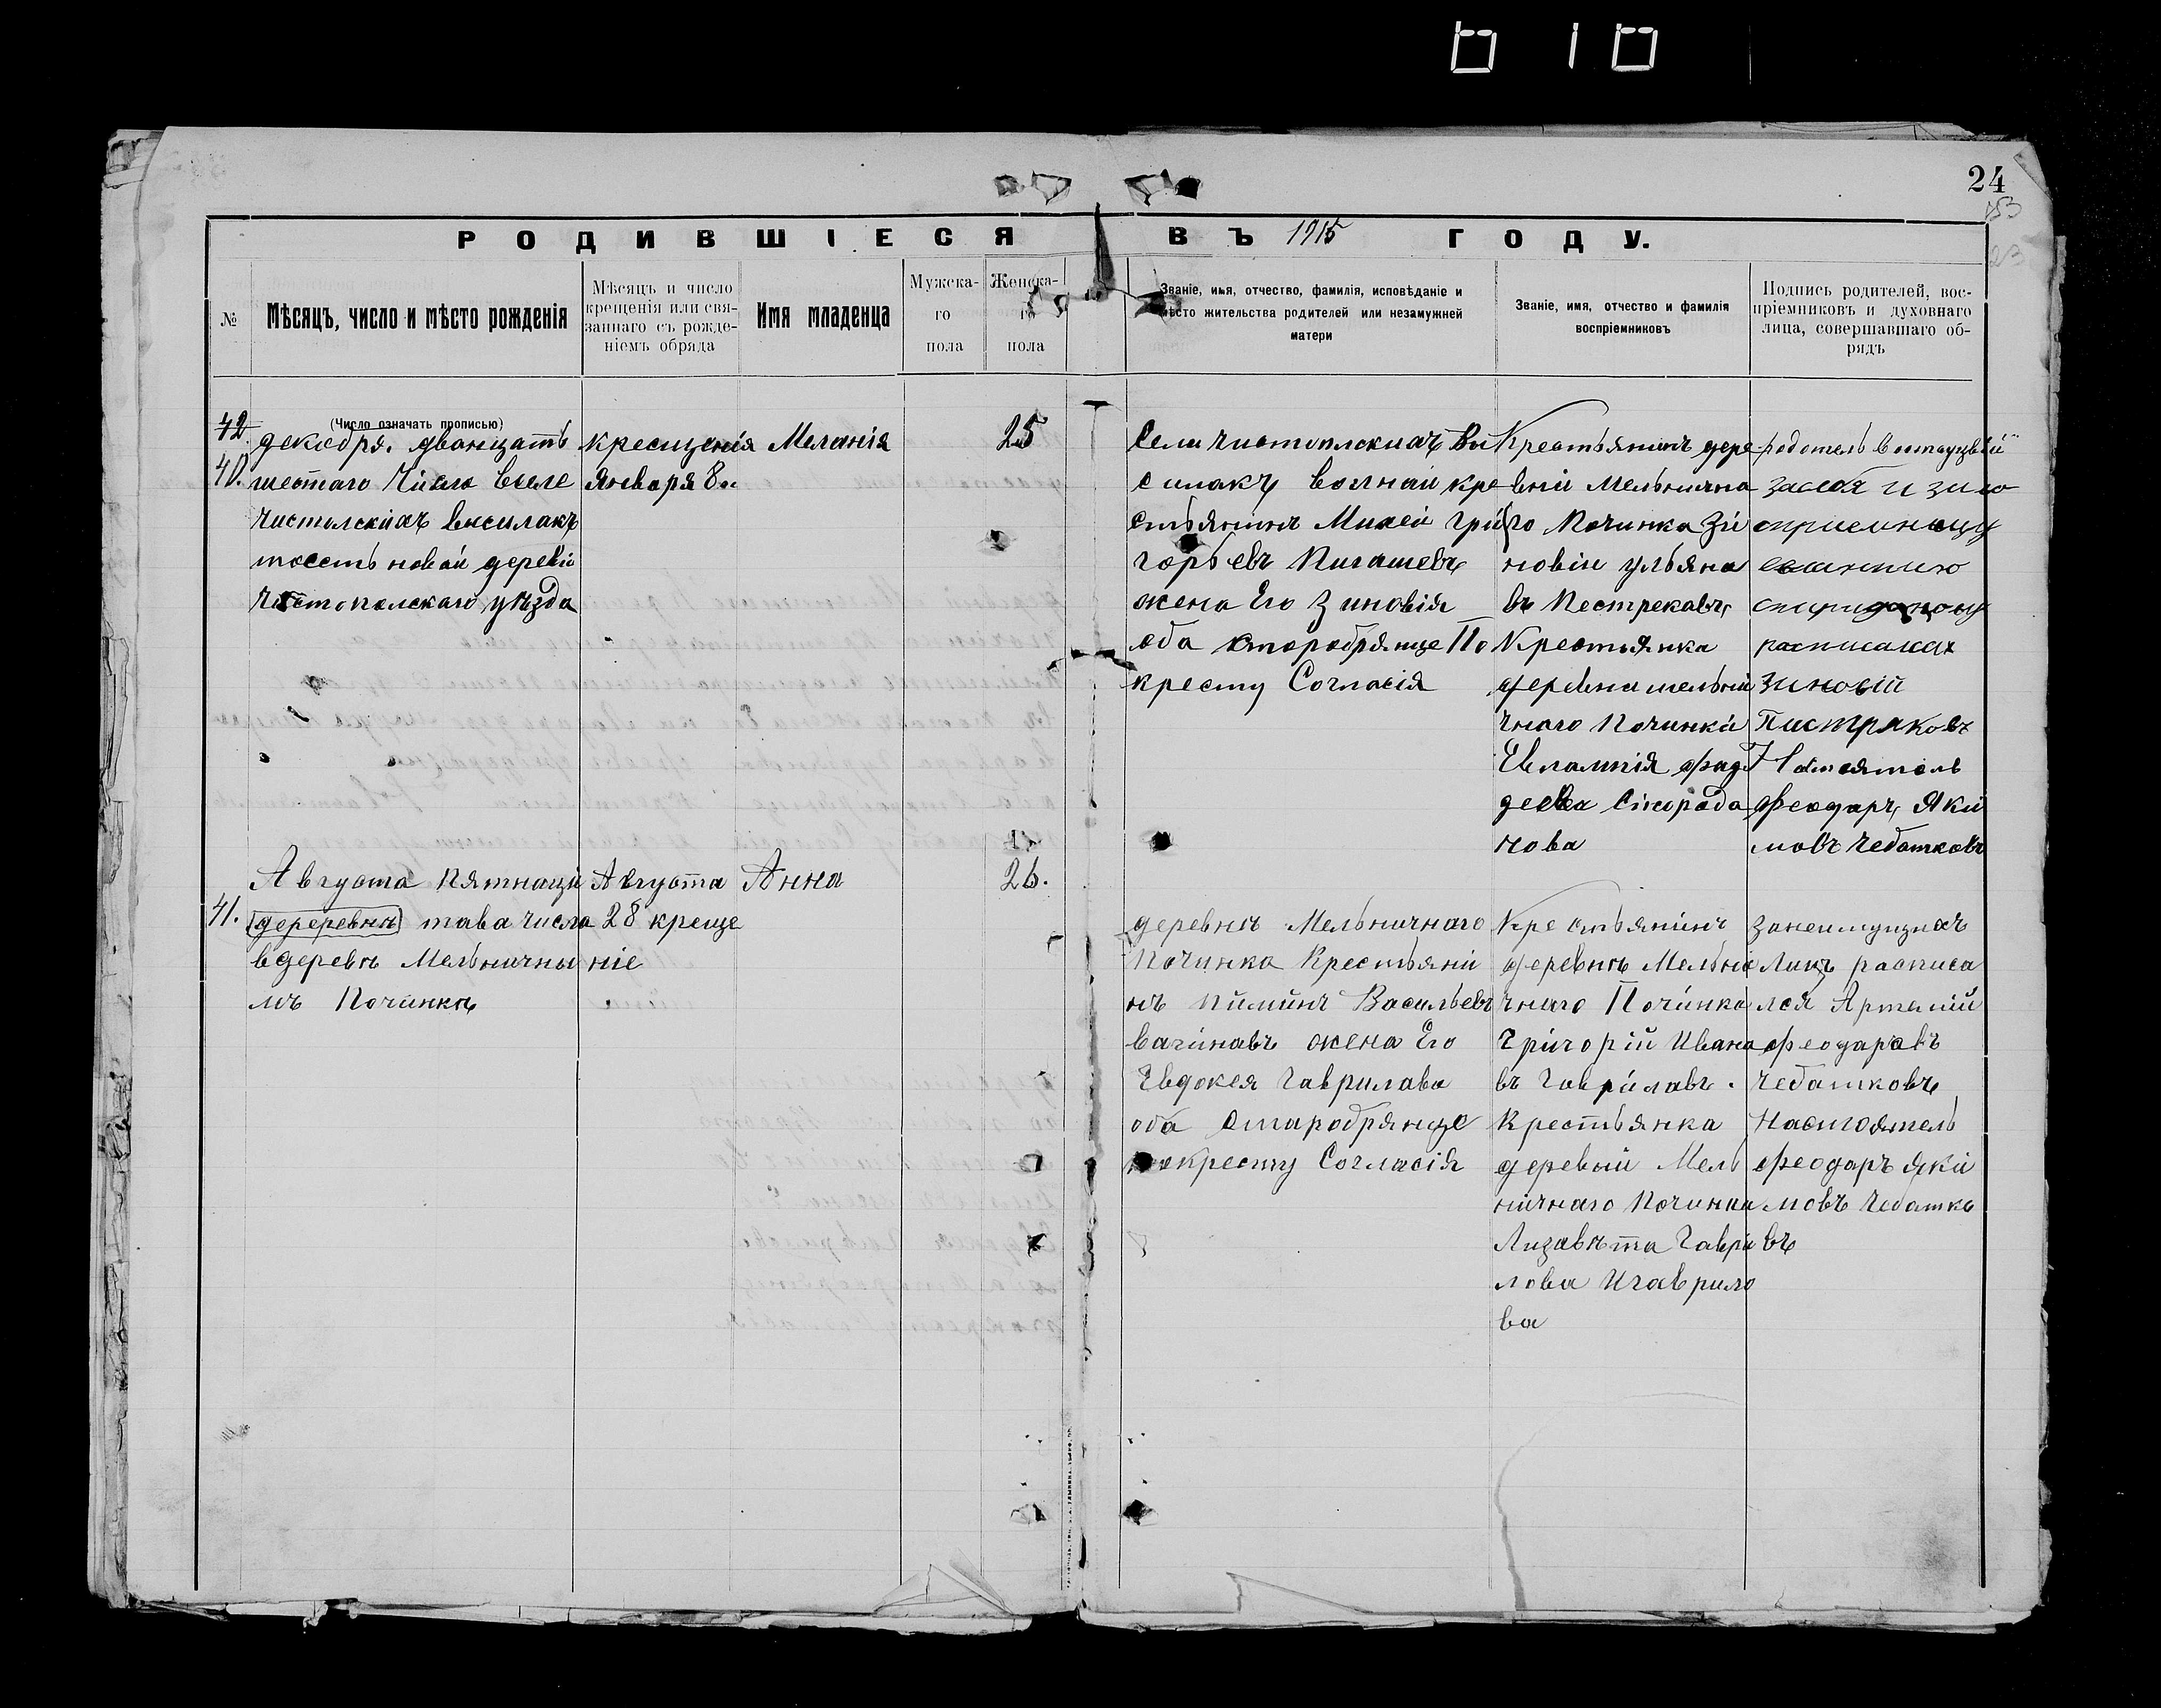 24
РОДИВШІЕСЯ ВЪ 1915 ГОДУ.
№
Мѣсяцъ, число и мѣсто рожденія
Мѣсяцъ и число
крещенія или свя-
заннаго съ рожде-
ніемъ обряда
Имя младенца
Мужска-
го
пола
Женска-
го
пола
Званіе, имя, отчество, фамилія, исповѣданіе и
мѣсто жительства родителей или незамужней
матери
Званіе, имя, отчество и фамилія
воспріемниковъ
Подпись родителей, вос-
пріемниковъ и духовнаго
лица, совершавшаго об-
рядъ
(Число означать прописью)
42
40.
декабря. дванцать
шестаго Число вселе
Чистолскихъ висилакъ
тоесть новай деревни
Чистополскаго уѣзда
кресщенія
Января 8..
Меланія
25
Сели чистоплскихъ Ви
силакъ волнай кре
стьянинъ Михеи Гри
горьевъ Пигашевъ
жена Его Зиновія
оба старобрянце По
кресту Согласія
Крестьянинъ дере
вніи Мельнична
го Починка Зи
новіи ульяна
въ Пестрекавъ
Крестьянка
деревни мельни
чнаго Починки
Евлампія фад
деева Спирада
нова
родотель
засебя и зино
оприемницу
евлампию
спиридонову
расписалах
Зиновій
Пистряковъ
Настоятель
феодаръ Яки
мовъ Чебатковъ
41.
Августа Пятнаци
дереревнѣ тава числа
вдеревѣ Мельнични
мъ Починкѣ
Августа
28 креще
ніе
Анна
26.
деревнѣ Мельничнаго
Починка Крестьяни
нъ Пиминъ Васильевъ
Вагинавъ жена Его
Евдокея Гаврилава
оба старобрянце
покресту Согласія
Крестьянинъ
деревнѣ Мельни
чнаго Починка
Григорій Ивано
въ Гаврилавъ.
Крестьянка
деревни Мель
ничнаго Починка
Лизавѣта Гаври
лова Игаврило
ва
Занеимущихъ
Лицъ расписа
лся Артемій
феодаравъ
Чебатковъ
Настоятель
феодаръ Яки
мовъ Чебатко
въ